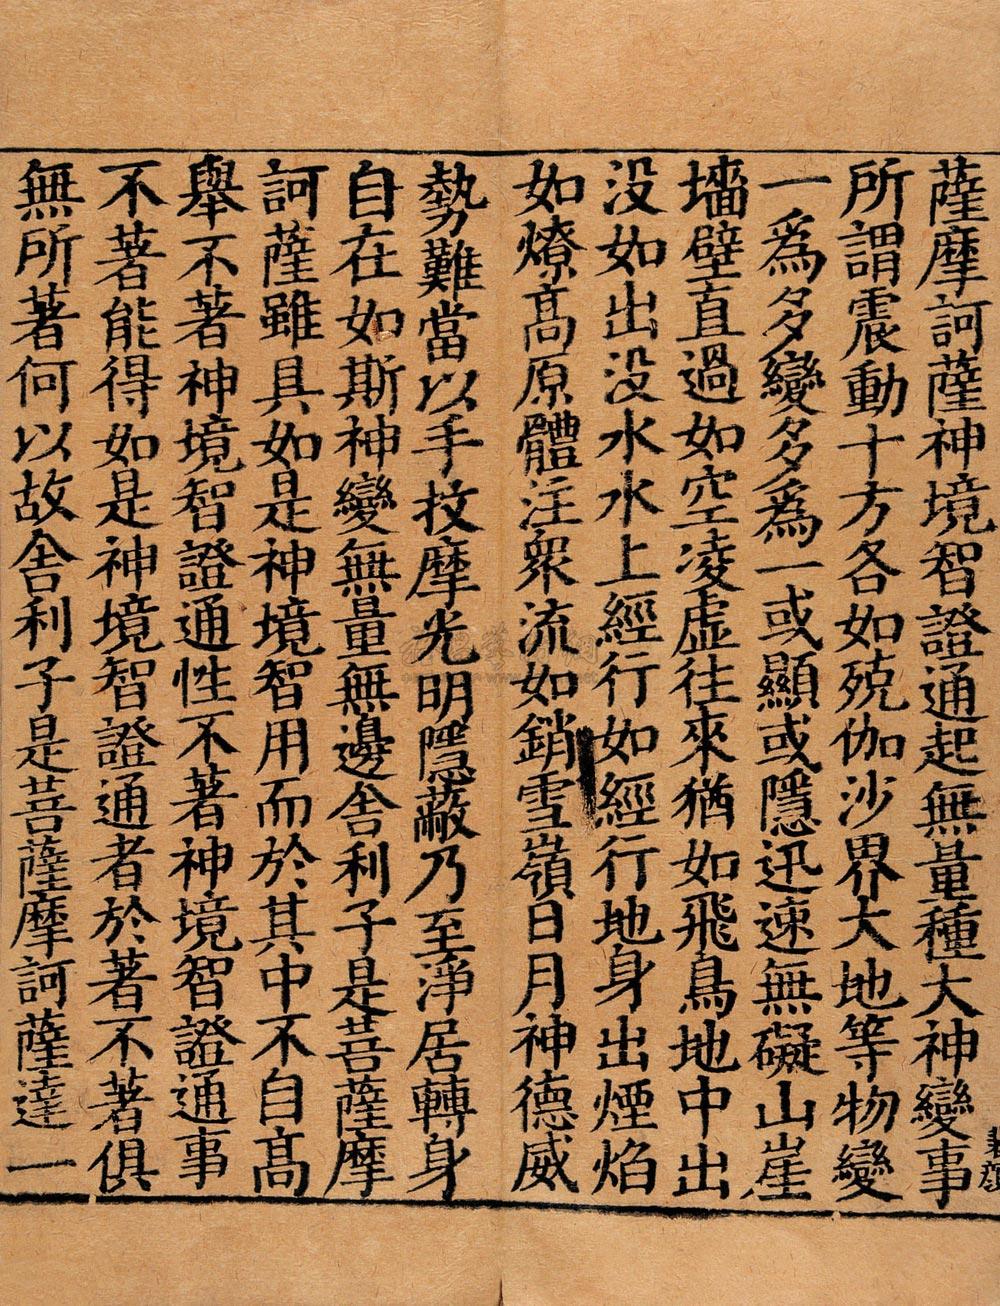 薩摩訶薩神境智證通起無量種大神變事
所謂震動十方各如殑伽沙界大地等物變
一爲多變多爲一或顯或隱迅速無礙山崖
墻壁直過如空凌虛往來猶如飛鳥地中出
没如出没水水上經行如經行地身出煙焰
如燎髙原體注衆流如銷雪嶺日月神德威
勢難當以手抆摩光明隱蔽乃至淨居轉身
自在如斯神變無量無邊舍利子是菩薩摩
訶薩雖具如是神境智用而於其中不自髙
舉不著神境智證通性不著神境智證通事
不著能得如是神境智證通者於著不著俱
無所著何以故舍利子是菩薩摩訶薩達一